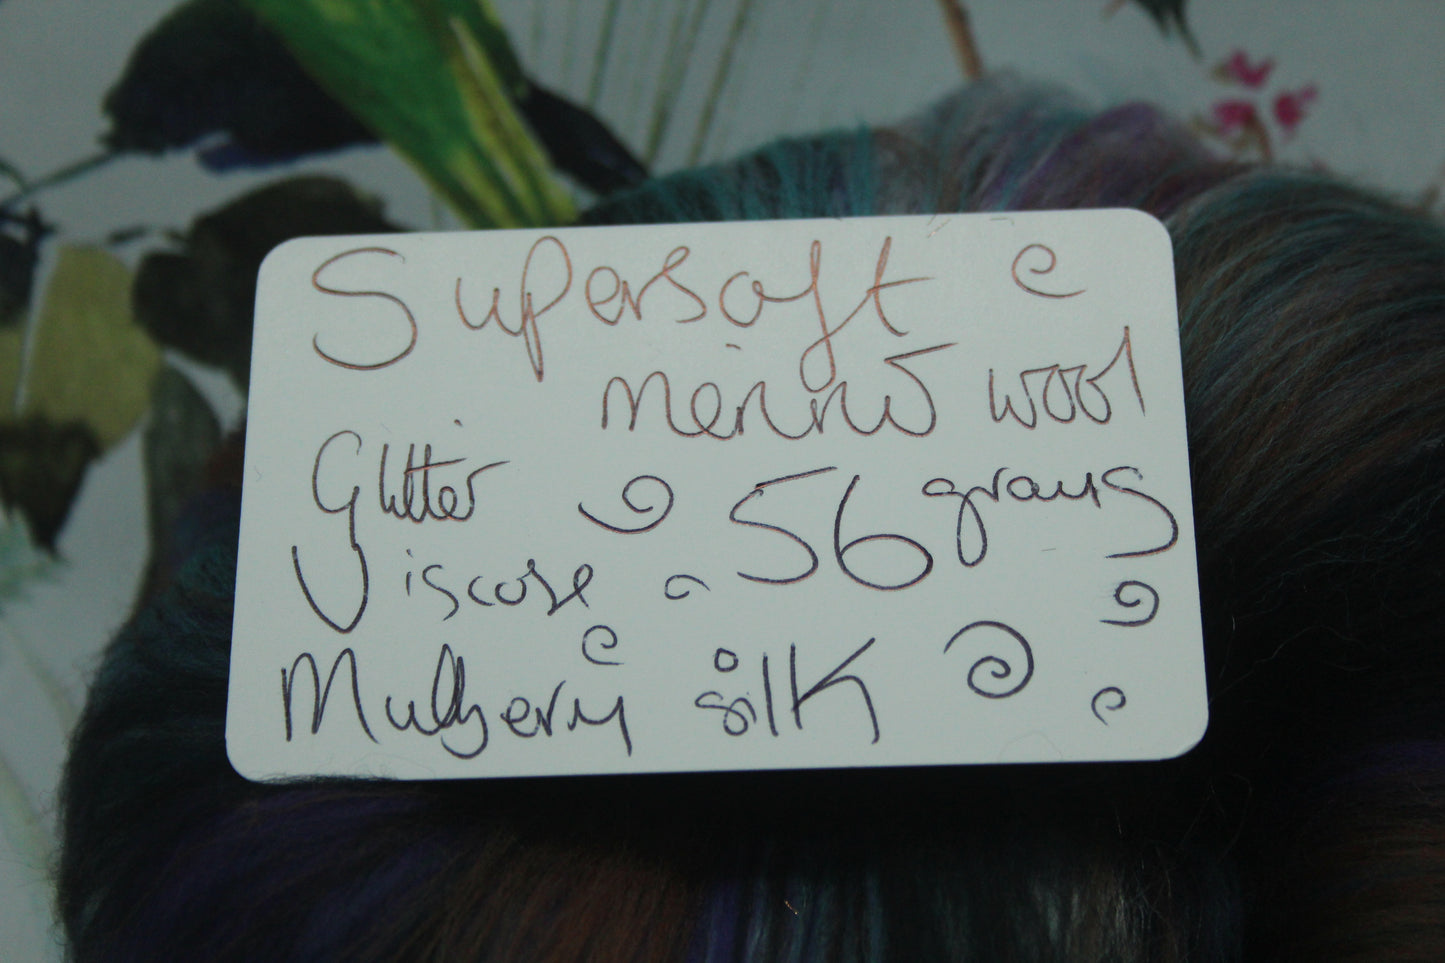 Supersoft
merino wool
Glitter 56 grams
Viscose
Mulberry silk